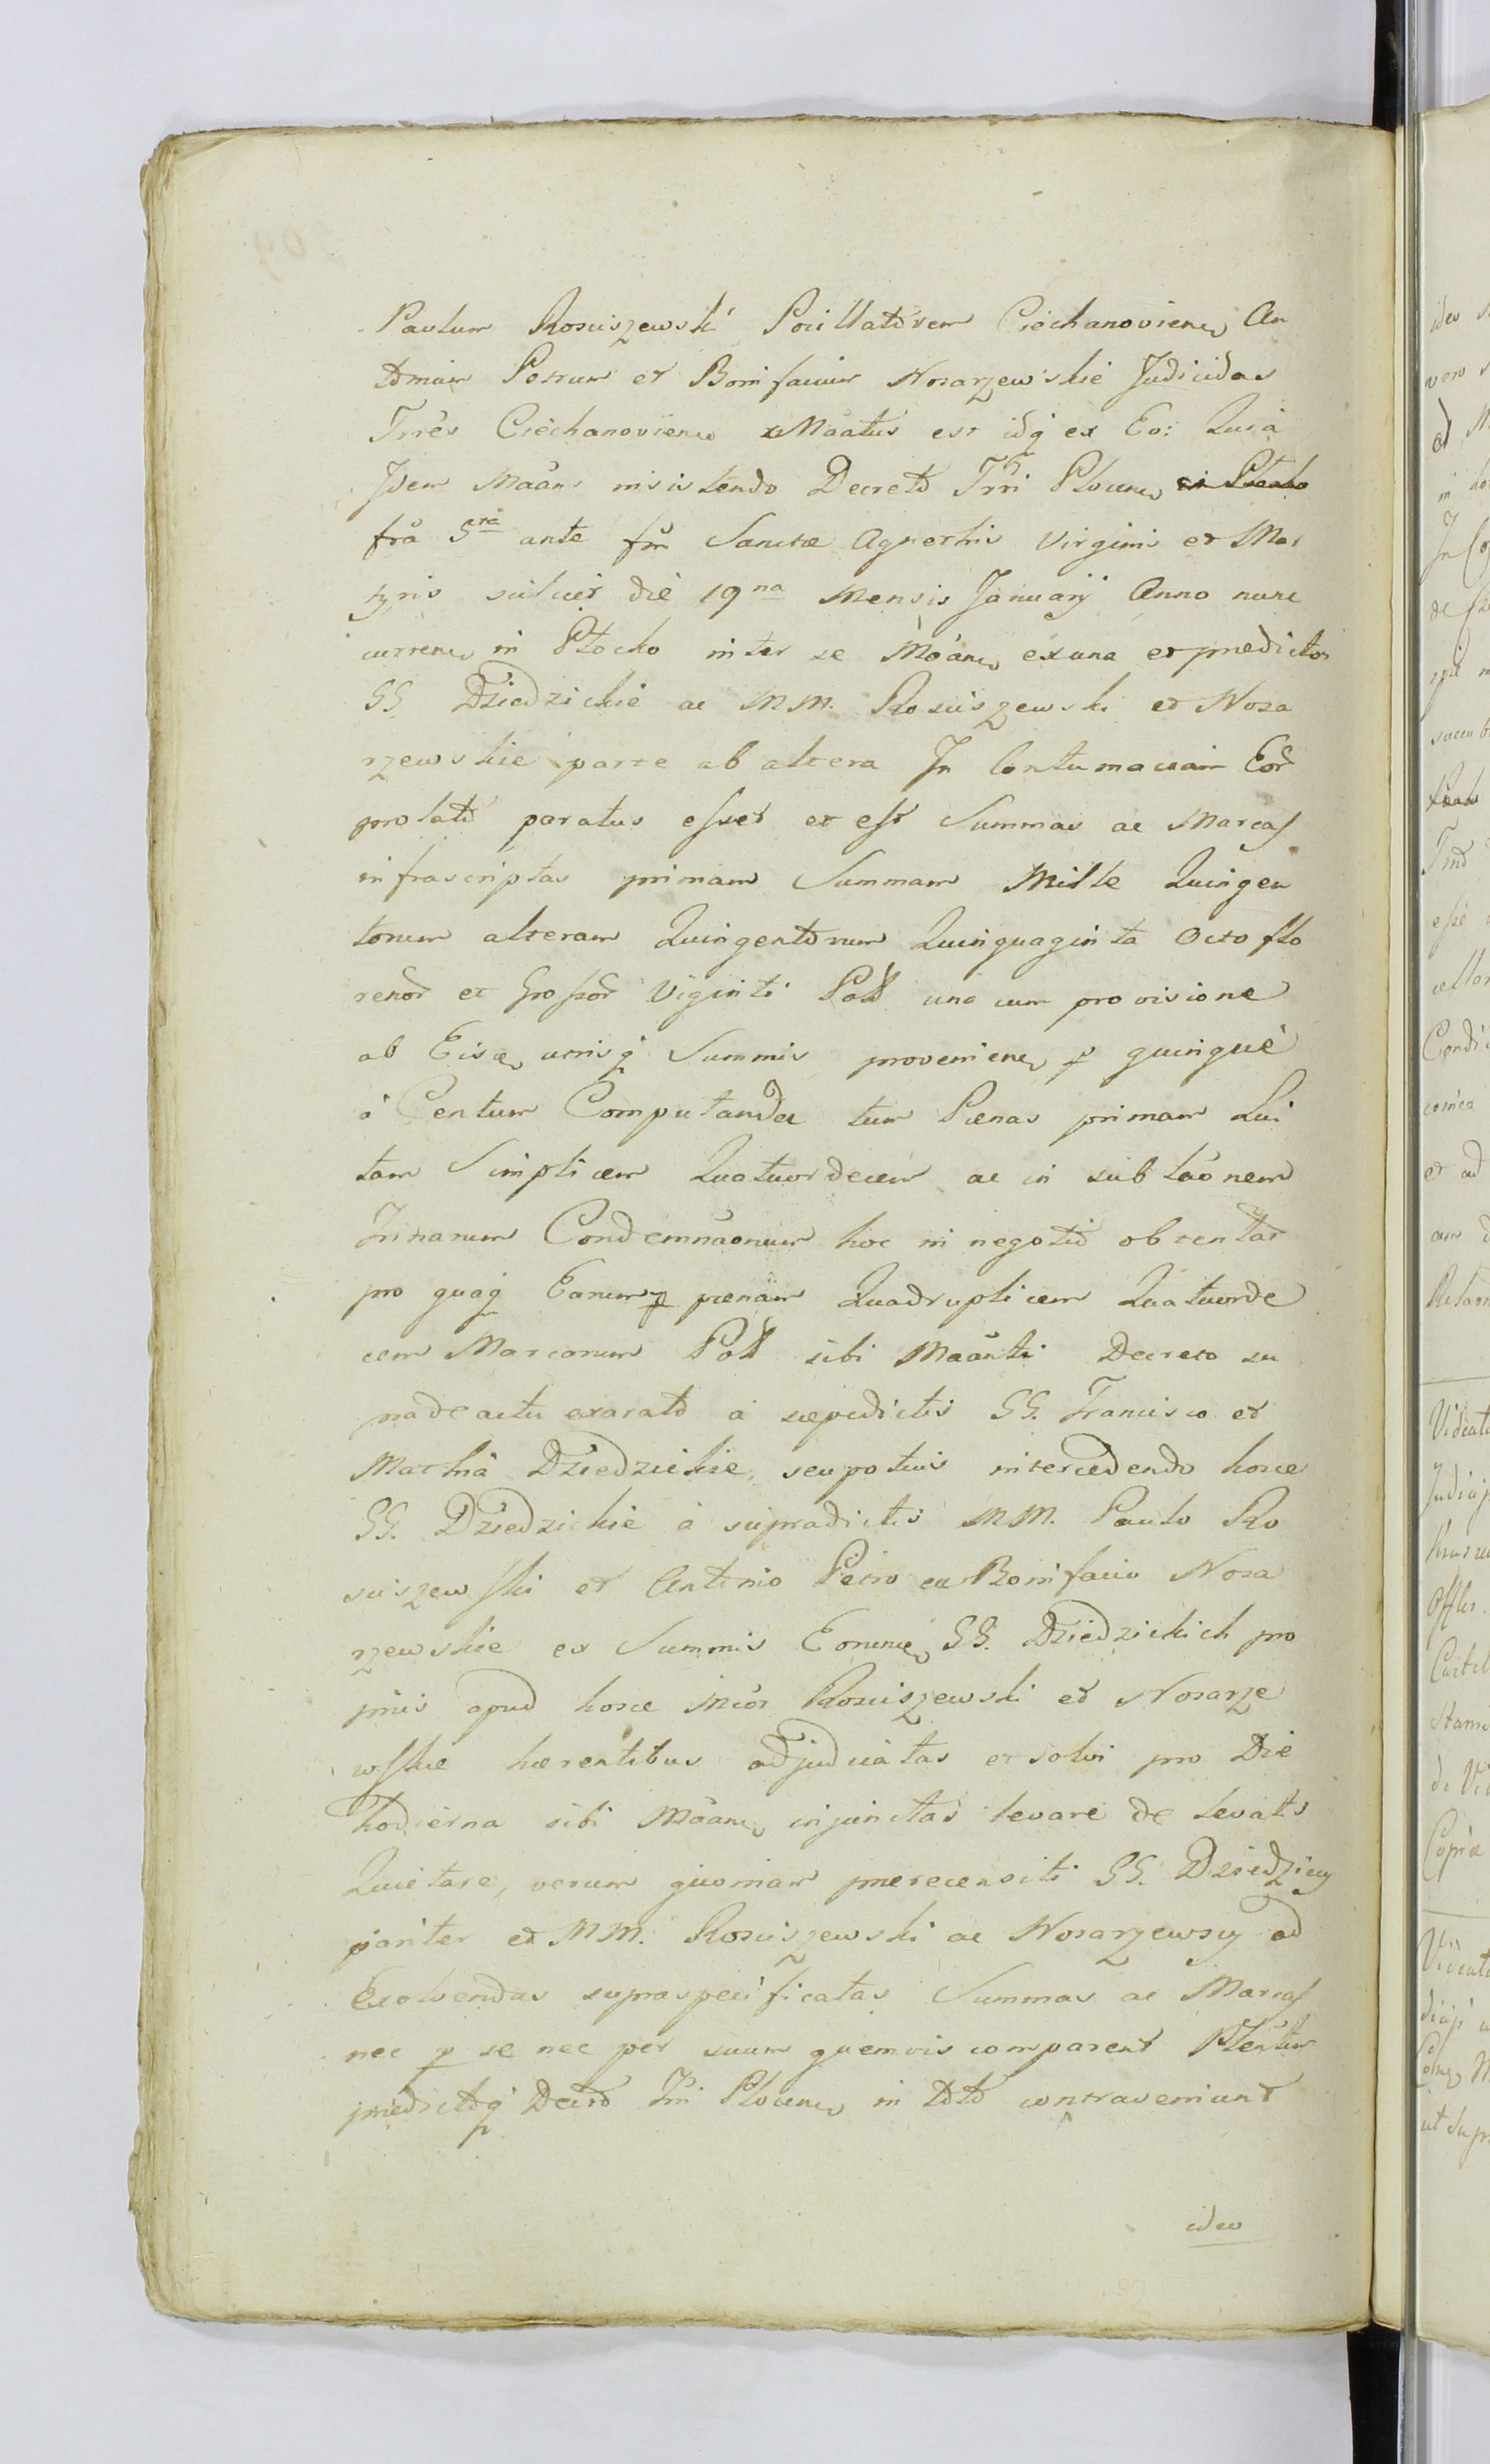 Paulum Rosciszewski Pocillatorem Ciechanoviens An
tonium Petrum et Bonifacium Nosarzewskie Judicidas
Trres Ciechanoviens Maatus est idq ex Eo: Quia
Idem Maans insistendo Decreto Trri Plocens
fra 5ta ante fm Sanctae Agnethis Virginis et Mar
tyris scilicet die 19na Mensis Januarij Anno nunc
currens in Płocko inter se Moans ex una et praedictos
GG. Dziedzickie ac MM. Rosciszewski et Nosa
rzewskie parte ab altera In Contumaciam Eor
prolato paratus esset et est Summas ac Marcas
infrascriptas primam Summam Mille Quingen
torum alteram Quingentorum Quinquaginta Octo flo
renor et Grossor Viginti Poll una cum provisione
ab Eisce utrisq Summis proveniens p quinque
à Centum Computandae tum Paenas primam Lui
tam Simplicem Quatuordecem ac in sublaonem
Trinarum Condemnaonum hoc in negotio obtentar
pro quaq Earum p paenam Quadruplicem Quatuorde
cem Marcarum Poll sibi Maanti Decreto su
pra de actu exarato a saepedictis GG. Francisco et
Martha Dziedzickie, seu potius intercedendo hosce
GG. Dziedzickie à supradictis MM. Paulo Ro
sciszewski et Antonio Petro et Bonifacio Nosa
rzewskie ex Summis Eorunce GG. Dziedzickich pro
priis apud hosce Mcos Rosciszewski et Nosarze
wskie haerentibus adjudicatas et solvi pro Die
hodierna sibi Moans injunctas levare de levatis
Quietare, verum quoniam praerecensiti GG. Dziedziccy
pariter et MM. Rosciszewski ac Nosarzewscy ad
Exolvendas supraspecificatas Summas ac Marcas
nec p se nec per suum quemvis comparent
praedictoq Decto Trri Plocens in toto contraveniunt
ideo